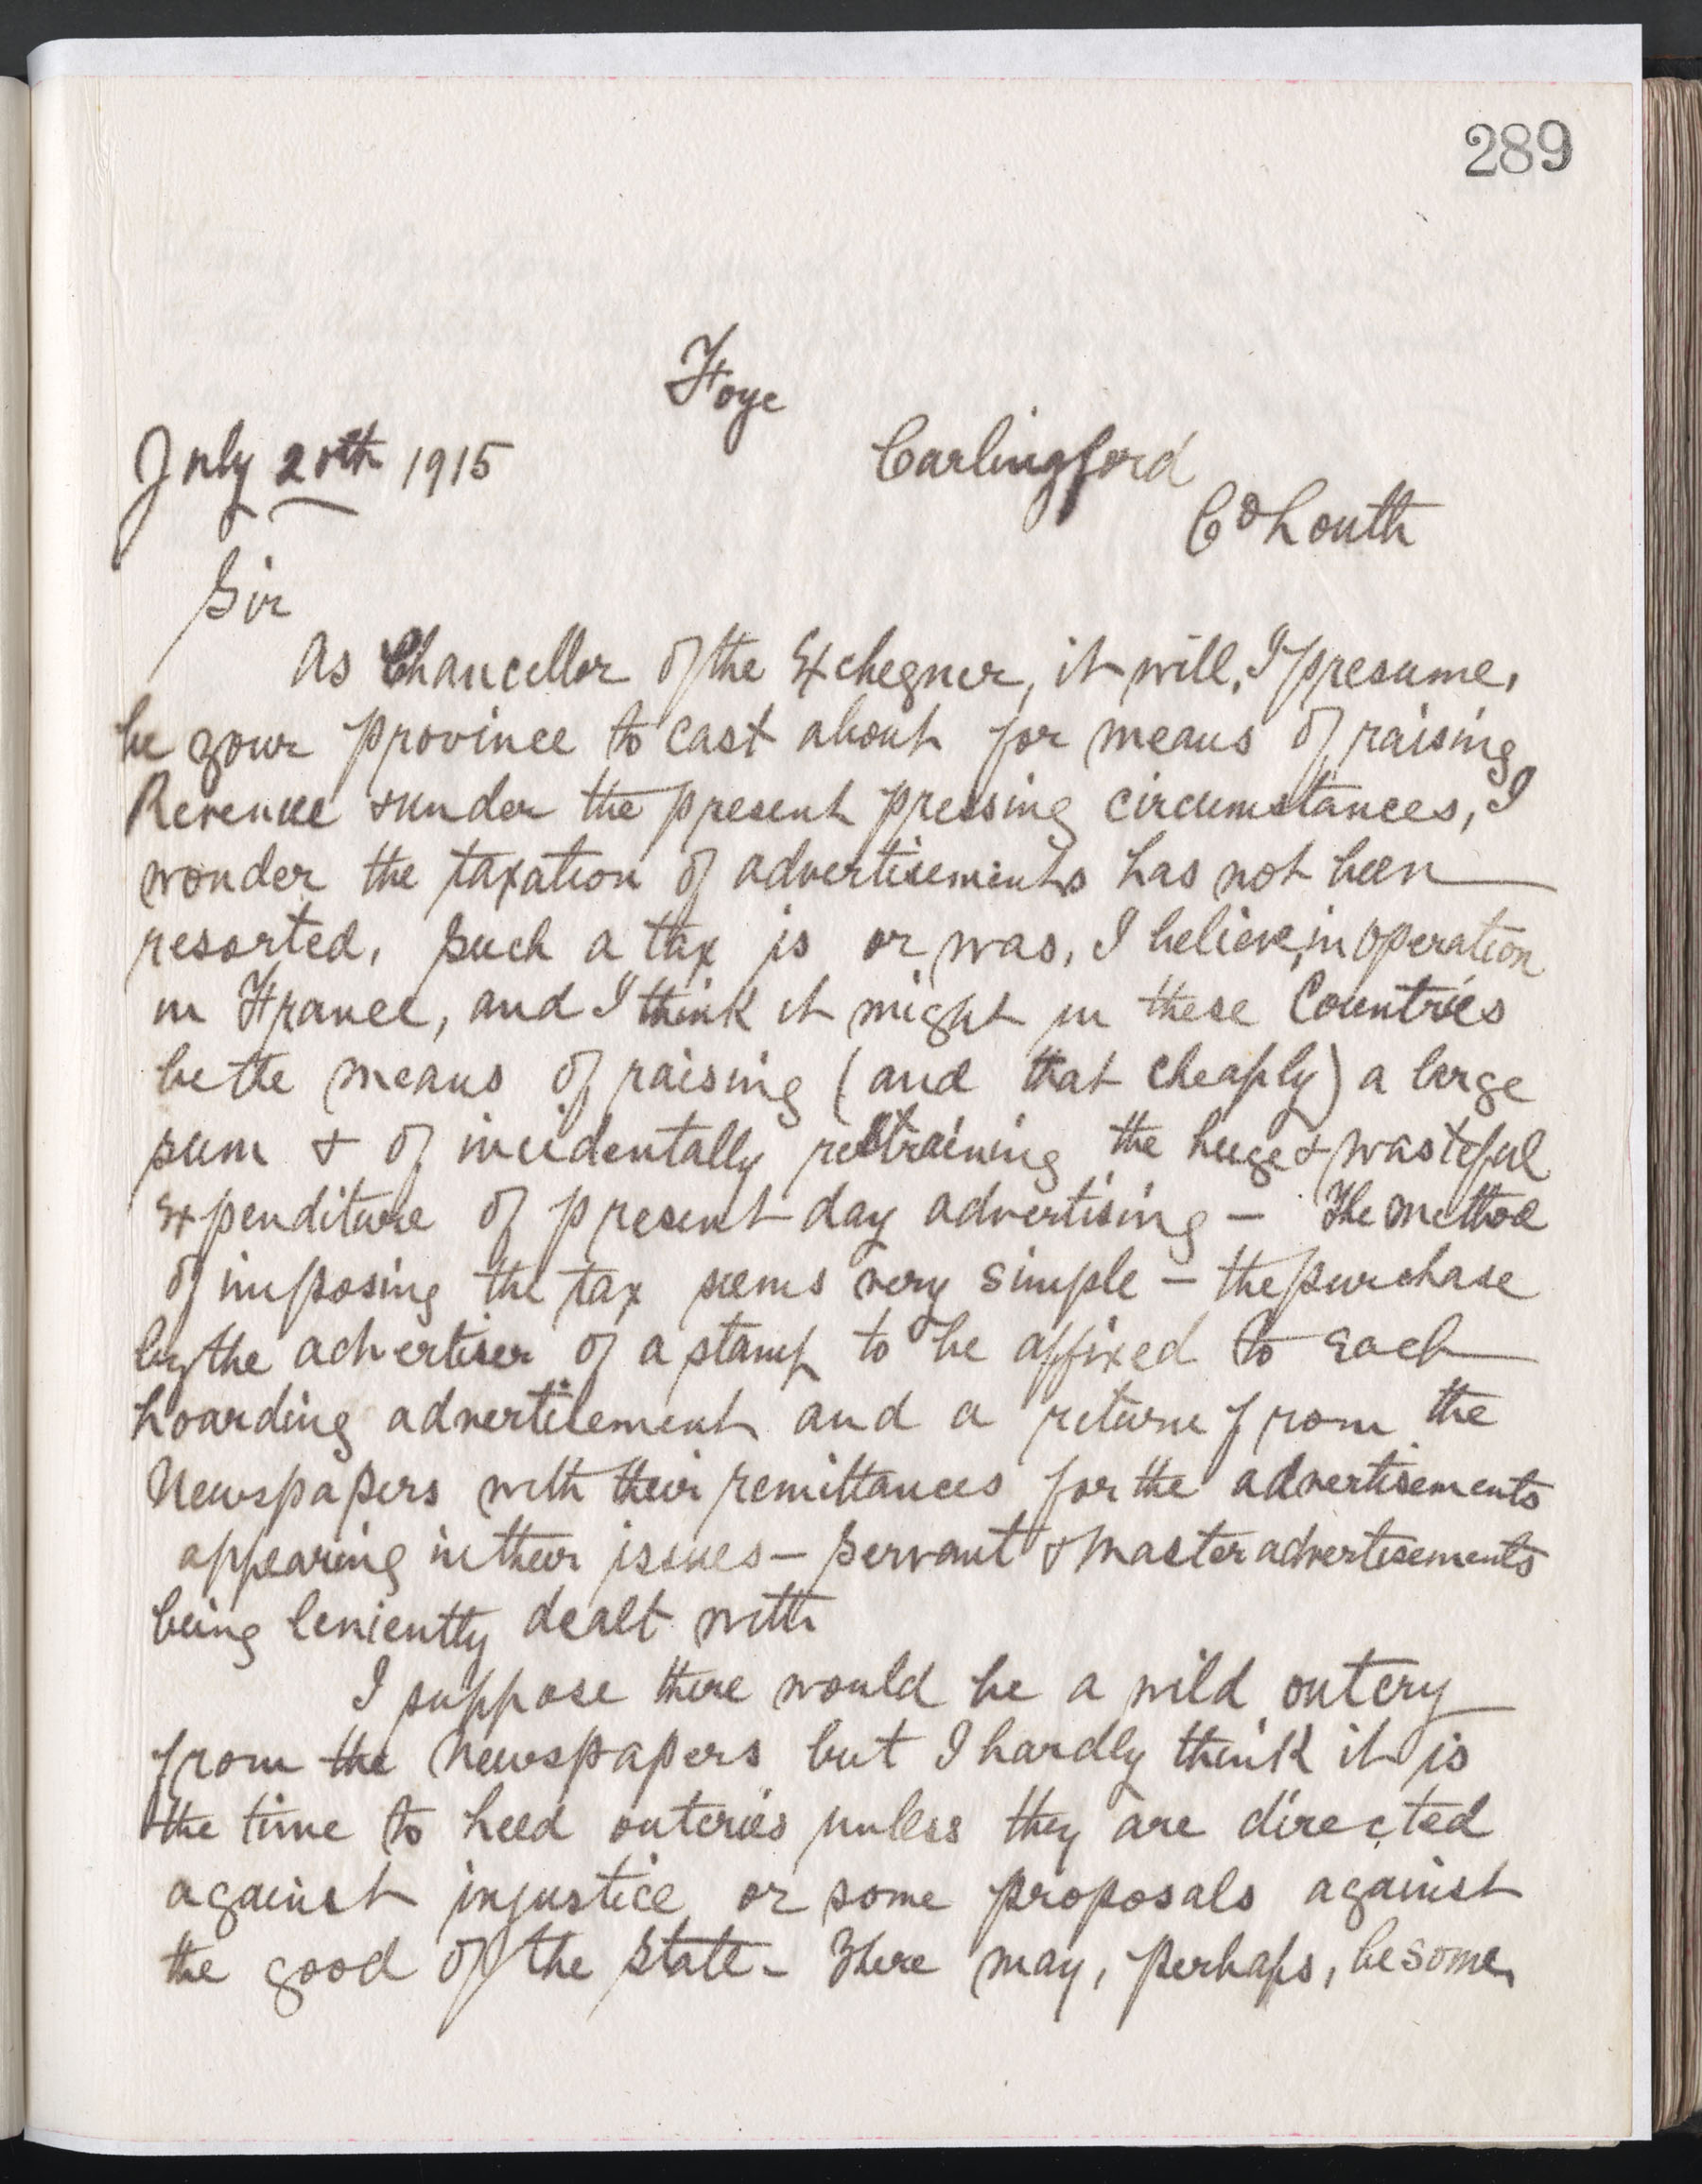 289
Foye
July 20th 1915
Carlingford
Co Louth
Sir
As Chancellor of the Exchequer, it will, I presume,
be your province to cast about for means of raising
Revenue & under the present pressing circumstances, I
wonder the taxation of advertisements has not been
resorted, such a tax is or was, I believe, in operation
in France, and I think it might in these Countries
be the means of raising (and that cheaply) a large
sum & of incidentally restraining the huge & wasteful
expenditure of present day advertising – The method
of imposing the tax seems very simple – the purchase
by the advertiser of a stamp to be affixed to each
hoarding advertisement and a return from the
Newspapers with their remittances for the advertisements
appearing in their issues – Servant & Master advertisements
being leniently dealt with
I suppose there would be a wild outcry
from the Newspapers but I hardly think it is
the time to heed outcries unless they are directed
against injustice or some proposals against
the good of the State – There may, perhaps, be some